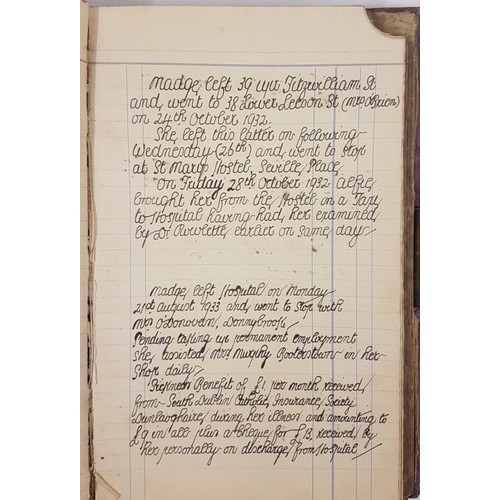 Madge left 39 upr Fitzwilliam St
and went to 38 Lower Leeson St (Mrs O'Brien)
on 24th October 1932.
She left this latter on following
Wednesday (26th) and went to stop
at St Mary's Hostel, Seville Place
On Friday 28th October 1932 Alfie
brought her from the Hostel in a Taxi
to Hospital having had her examined
by Dr Rowlette earlier on same day
Madge left Hospital on Monday
21st August 1933 and went to stop with
Mrs O'Donovan, Donnybrook
Pending taking up permanent employment
she assisted Mrs Murphy Booterstown in her
Shop daily
Sickness Benefit of £1 per month received
from South Dublin Insurance Society
Dunlaoghaire, during her illness and amounting to
£9 in all plus a cheque for received by
her personally on discharge from Hospital